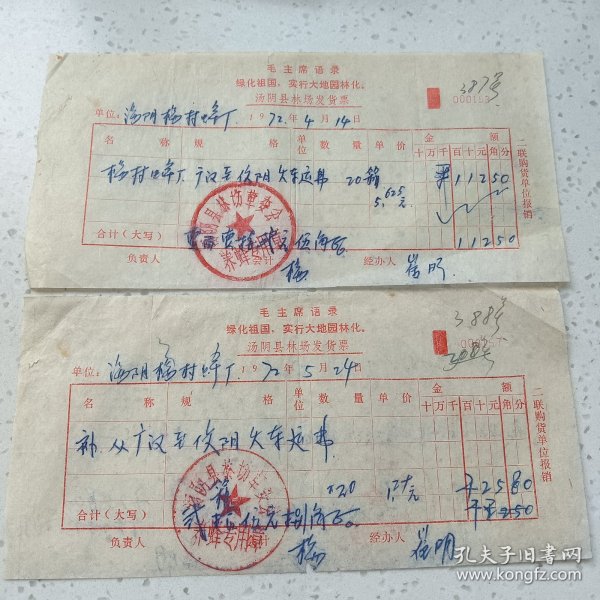 毛主席语录
绿化祖国、实行大地园林化。
汤阴县林场发货票
387号
单位：汤阴 村蜂厂 1972年4月14日
名 称 规 格 单位 数 量 单 价 金 额
十万千百十元角分
村蜂厂 广汉至 阴火车运费 20箱 5.625元 ¥11250
合计（大写） 伍角 11250
负责人 会计 经办人 崔明
二联购货单位报销
汤阴县林场革委会
养蜂专用章
毛主席语录
绿化祖国、实行大地园林化。
汤阴县林场发货票
388号
单位：汤阴 村蜂厂 1972年5月24日
名 称 规 格 单位 数 量 单 价 金 额
十万千百十元角分
补 从广汉至 阴火车运费
箱 20 元 2580
合计（大写） 贰 伍元捌角
负责人 会计 经办人 崔明
二联购货单位报销
汤阴县林场革委会
养蜂专用章
孔夫子旧书网
www.kongfz.com